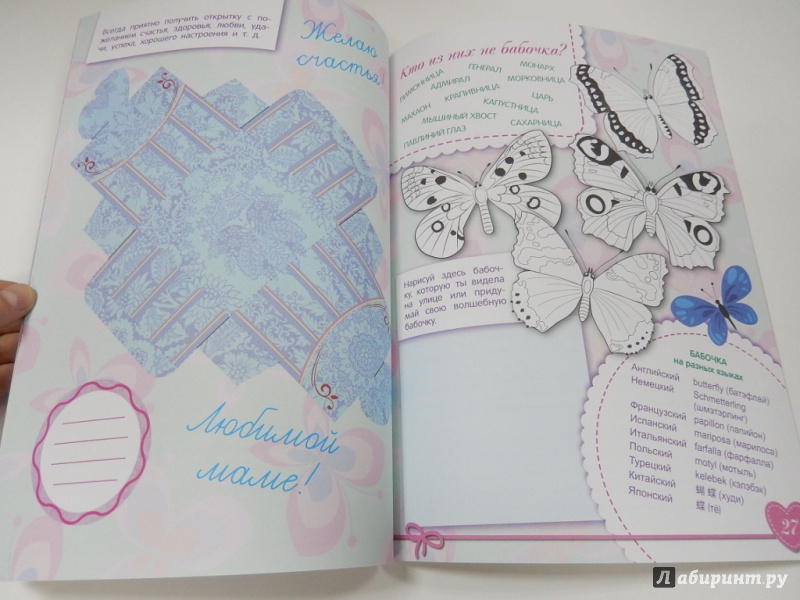 Всегда приятно получить открытку с по-
желанием счастья, здоровья, любви, уда-
чи, успеха, хорошего настроения и т. д.
Желаю
счастья!
Любимой
маме!
Кто из них не бабочка?
ЛИМОННИЦА ГЕНЕРАЛ МОНАРХ
АДМИРАЛ МОРКОВНИЦА
МАХАОН КРАПИВНИЦА ЦАРЬ
МЫШИНЫЙ ХВОСТ КАПУСТНИЦА
ПАВЛИНИЙ ГЛАЗ САХАРНИЦА
Нарисуй здесь бабоч-
ку, которую ты видела
на улице или приду-
май свою волшебную
бабочку.
БАБОЧКА
на разных языках
Английский butterfly (батэфлай)
Немецкий Schmetterling
(шмэтэрлинг)
Французский papillon (папийон)
Испанский mariposa (марипоса)
Итальянский farfalla (фарфалла)
Польский motyl (мотыль)
Турецкий kelebek (кэлэбэк)
Китайский 蝴 蝶 (худи)
Японский 蝶 (тё)
27
Лабиринт.ру